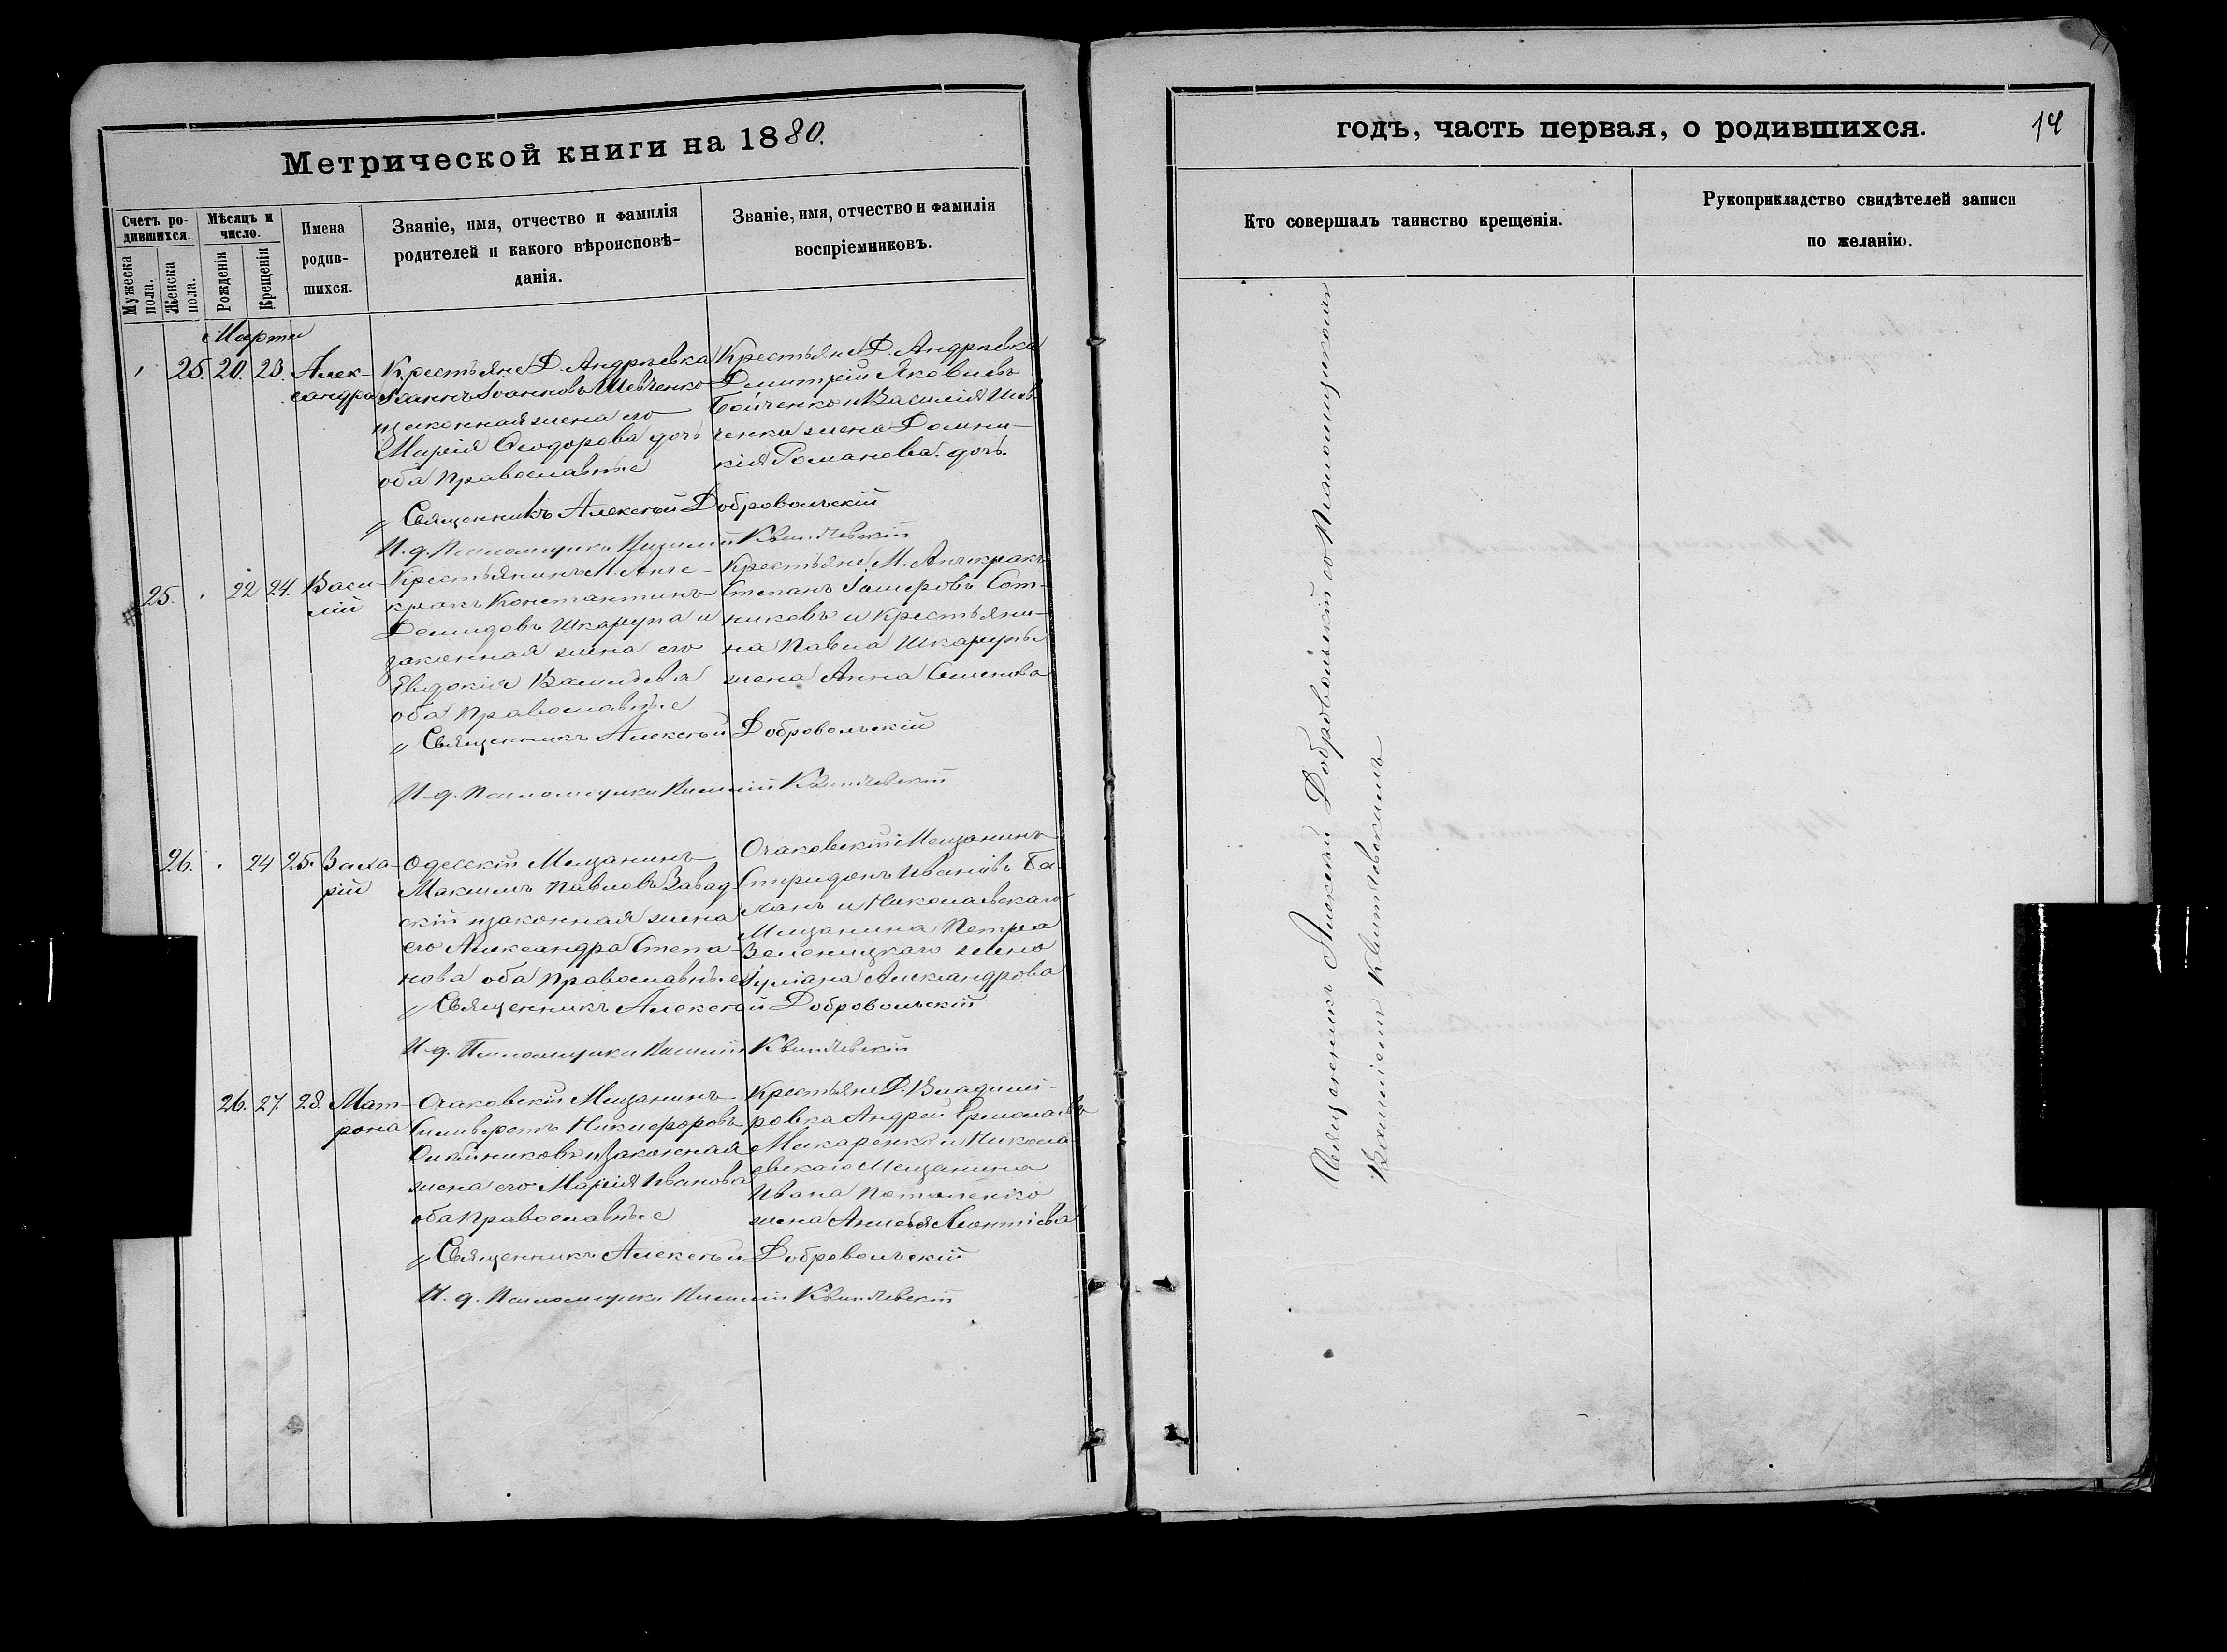 Метрической книги на 1880.
Счетъ ро-
дившихся.
Мѣсяцъ и
число.
Имена
родив-
шихся.
Званіе, имя, отчество и фамилія
родителей и какого вѣроисповѣ-
данія.
Званіе, имя, отчество и фамилія
воспріемниковъ.
Мужеска
пола.
Женска
пола.
Рожденія
Крещенія
Марта
25. 20. 23. Алек-
сандра
Крестьяне Д. Андреевка
Іоаннъ Іоанновъ Шевченко
и законная жена его
Марія Ѳеодорова дочь
оба Православные
Крестьяне Д. Андреевка
Димитрій Яковлевъ
Бойченко и Василія Шев
ченка жена Домни-
кія Романова дочь.
Священникъ Алексѣй Добровольскій
И. д. Псаломщика
25. 22 24. Васи-
лій
Крестьянинъ М. Анче-
кракъ Константинъ
Демидовъ Шкарупа и
законная жена его
Евдокія Васильева
оба Православные
Крестьяне М. Анчекракъ
Степанъ Сот-
никовъ и Крестьяни-
на Павла Шкарупы
жена Анна Семенова
Священникъ Алексѣй Добровольскій
И. д. Псаломщика
26. 24 25. Заха-
рій
Одесскій Мещанинъ
Максимъ Павловъ Завад
скій и законная жена
его Александра Степа-
нова оба Православные
Очаковскій Мещанинъ
Спиридонъ Ивановъ Ба-
ланъ и Николаевскаго
Мещанина Петра
Зеленицкаго жена
Іуліана Александрова
Священникъ Алексѣй Добровольскій
И. д. Псаломщика
26. 27. 28. Мат-
рона
Очаковскій Мещанинъ
Сильверстъ Никифоровъ
и законная
жена его Марія Иванова
оба Православные
Крестьяне Д. Владими-
ровка Андрей Ермолаевъ
Макаренко и Никола
евскаго Мещанина
Ивана Потапенко
жена Леонтіева
Священникъ Алексѣй Добровольскій
И. д. Псаломщика
годъ, часть первая, о родившихся.
14
Кто совершалъ таинство крещенія.
Рукоприкладство свидѣтелей записи
по желанію.
Священникъ Алексѣй Добровольскій со Псаломщикомъ